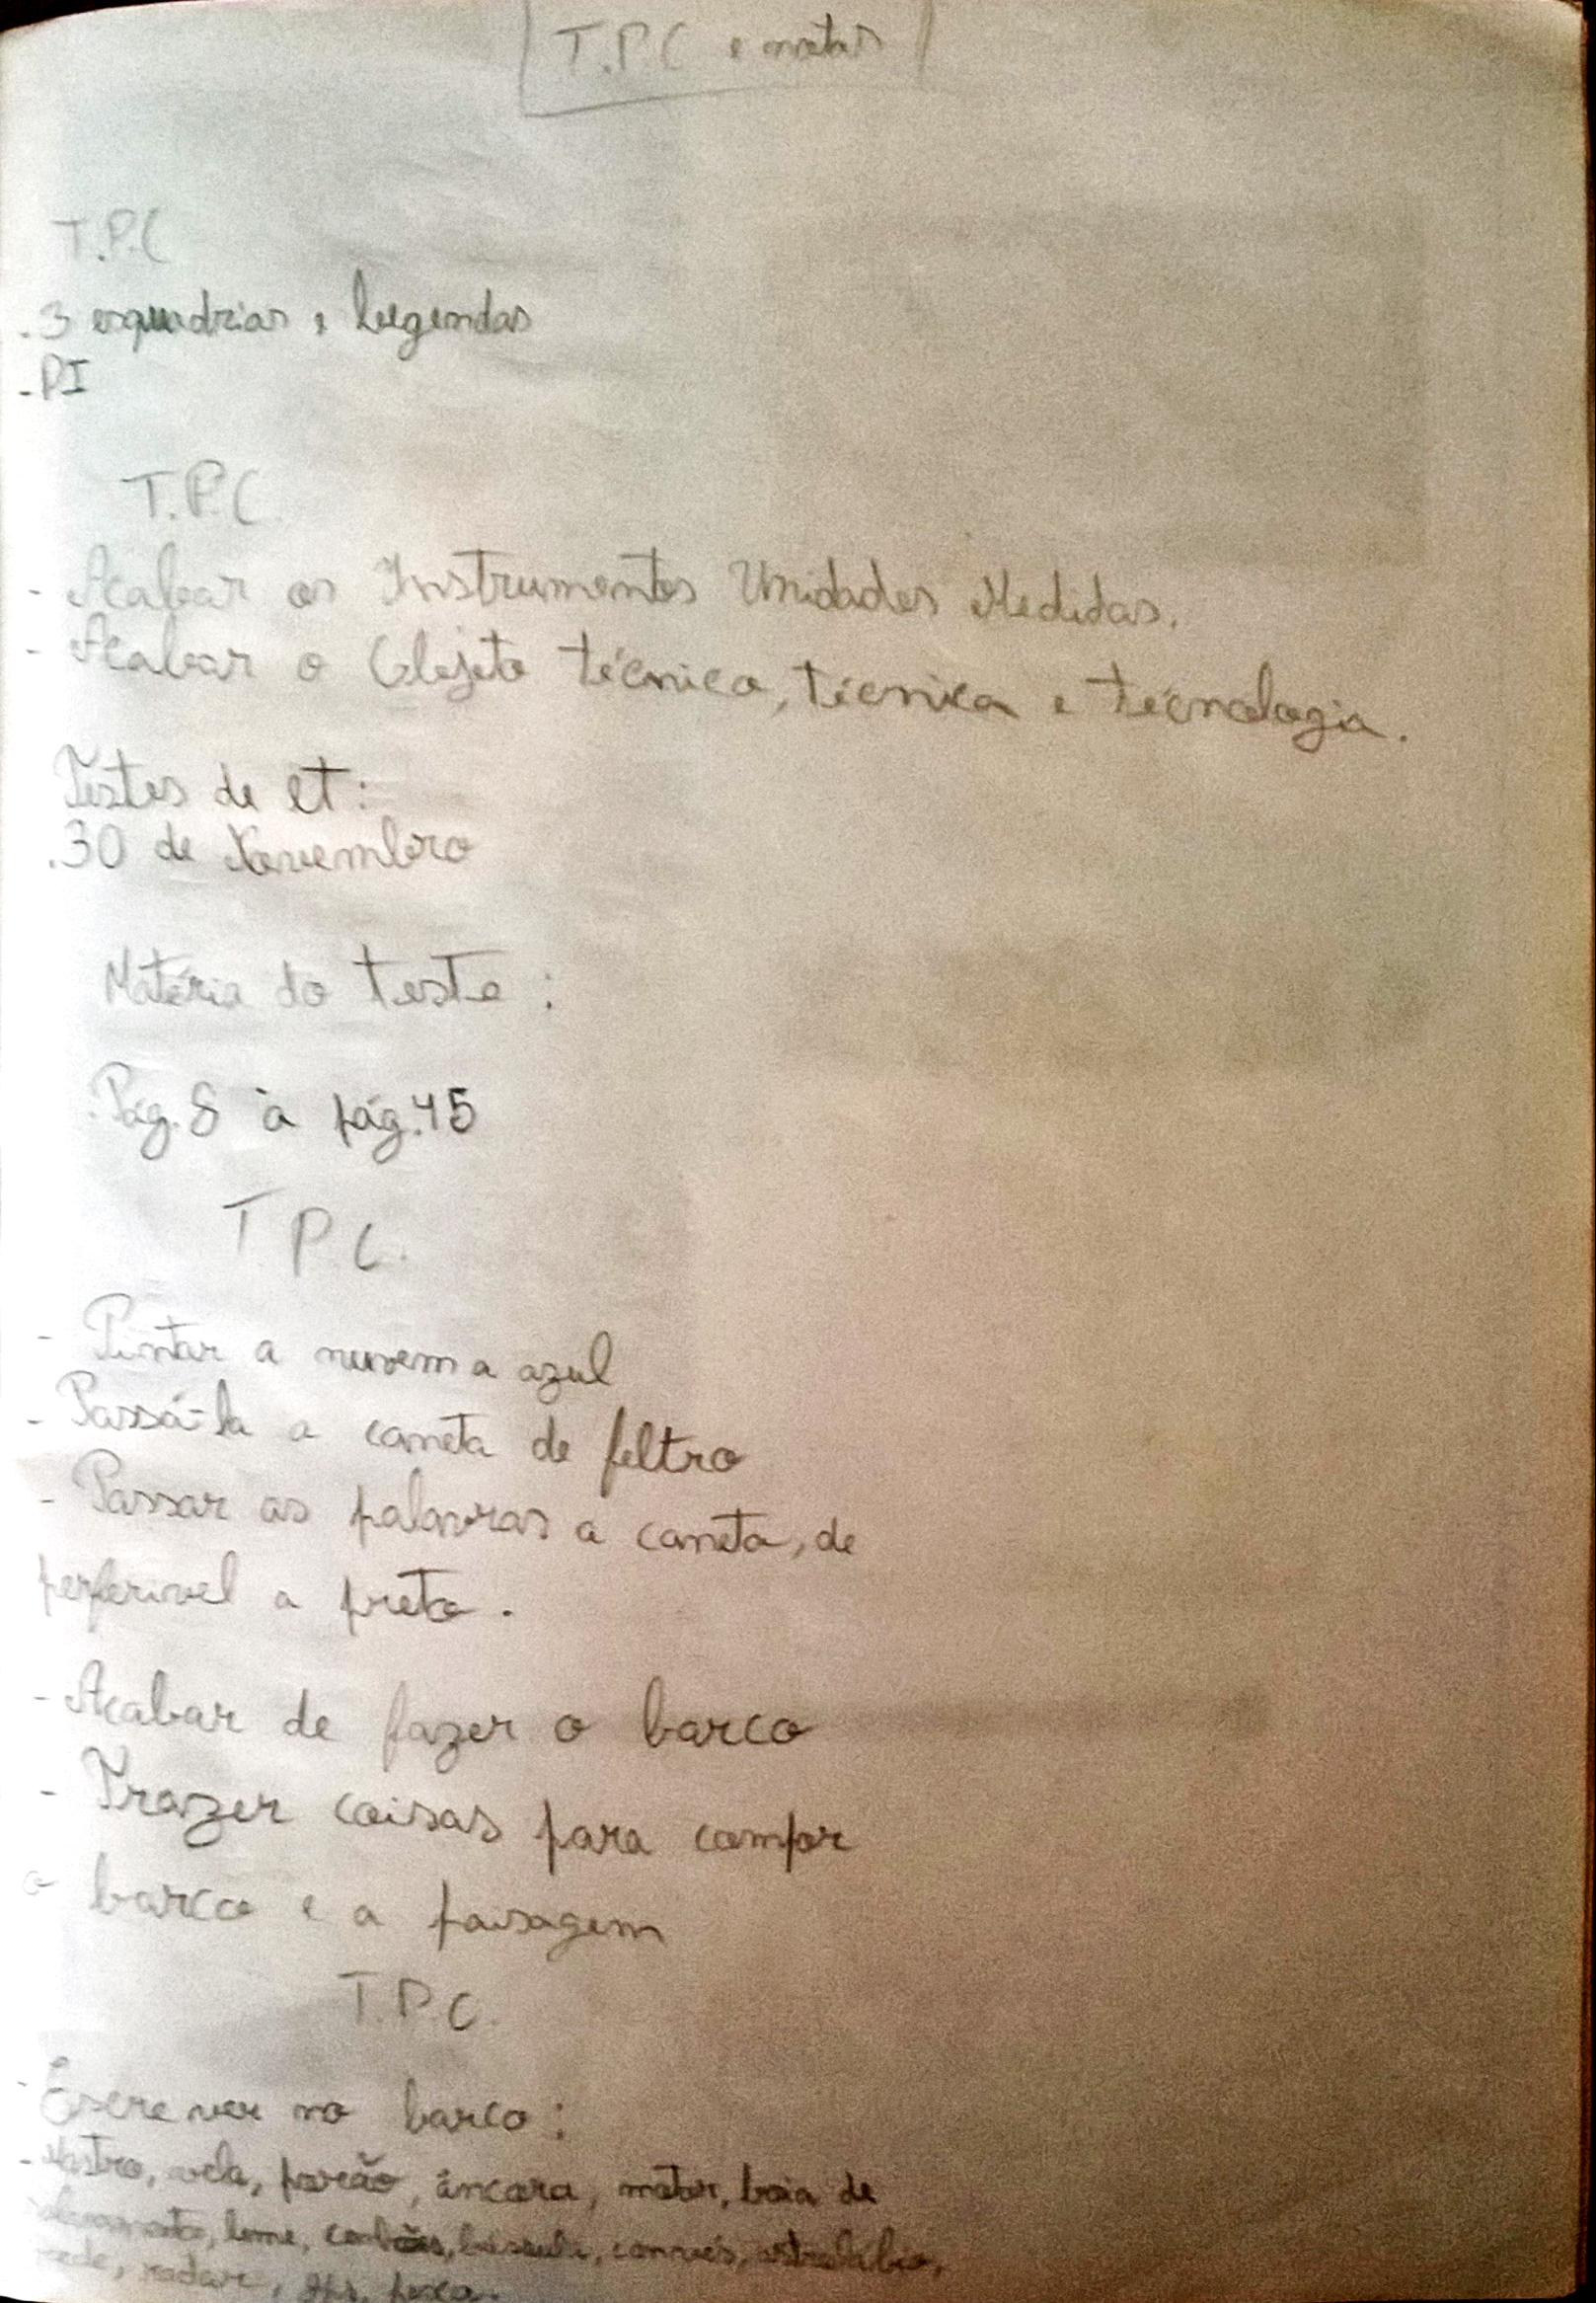 T.P.C e notas
T.P.C
.3 esquadrias e legendas
-PI
T.P.C.
- Acabar os Instrumentos Unidades Medidas.
- Acabar o Objeto técnico, técnica e técnologia.
Testes de et:
.30 de Novembro
Matéria do teste:
.Pág.8 à pág.45
T P C.
- Pintar a nuvem a azul
- Passá-la a caneta de feltro
- Passar as palavras a caneta, de
perferivel a preto.
- Acabar de fazer o barco
- Trazer coisas para compor
o barco e a paisagem
T.P.C.
- Escrever no barco:
- Mastro, vela, porão, âncora, motor, boia de
leme, convés, astrolábio,
rede, radar, gps,